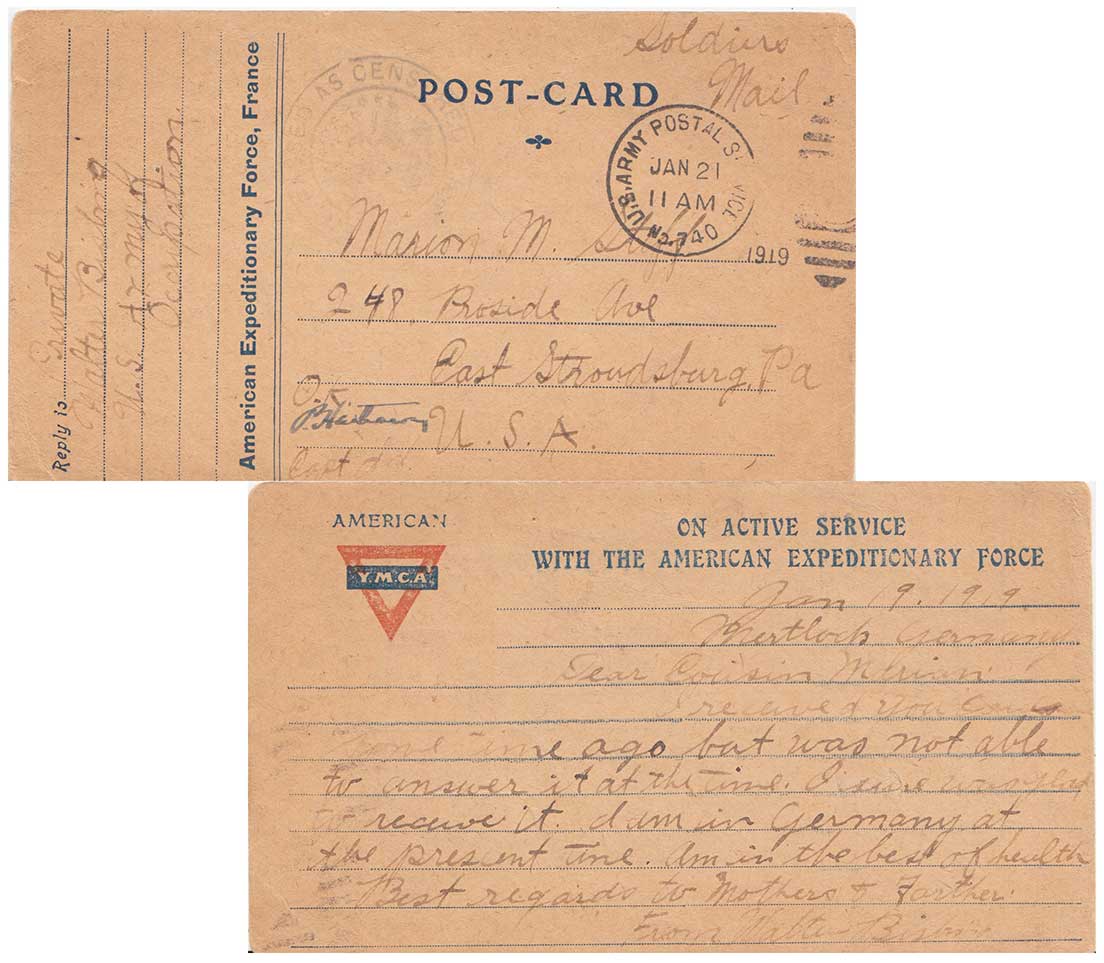 Soldiers
Mail
POST-CARD
AS CENS
U.S. ARMY POSTAL S VICE
JAN 21
11 AM
No. 740
1919
Marion M.
248 Proside Ave
East Stroudsburg, Pa
U. S. A.
O.K.
Capt
Reply to Private
Walter Bisbing
U. S. Army of
Occupation
American Expeditionary Force, France
AMERICAN
Y.M.C.A.
ON ACTIVE SERVICE
WITH THE AMERICAN EXPEDITIONARY FORCE
Jan 19. 1919
Germany
Dear Cousin Mirian.
I received you
some time ago but was not able
to answer it at the time. I sure was glad
to receive it. I am in Germany at
the present time. Am in the best of health
Best regards to Mothers & Farther.
From Walter Bisbing